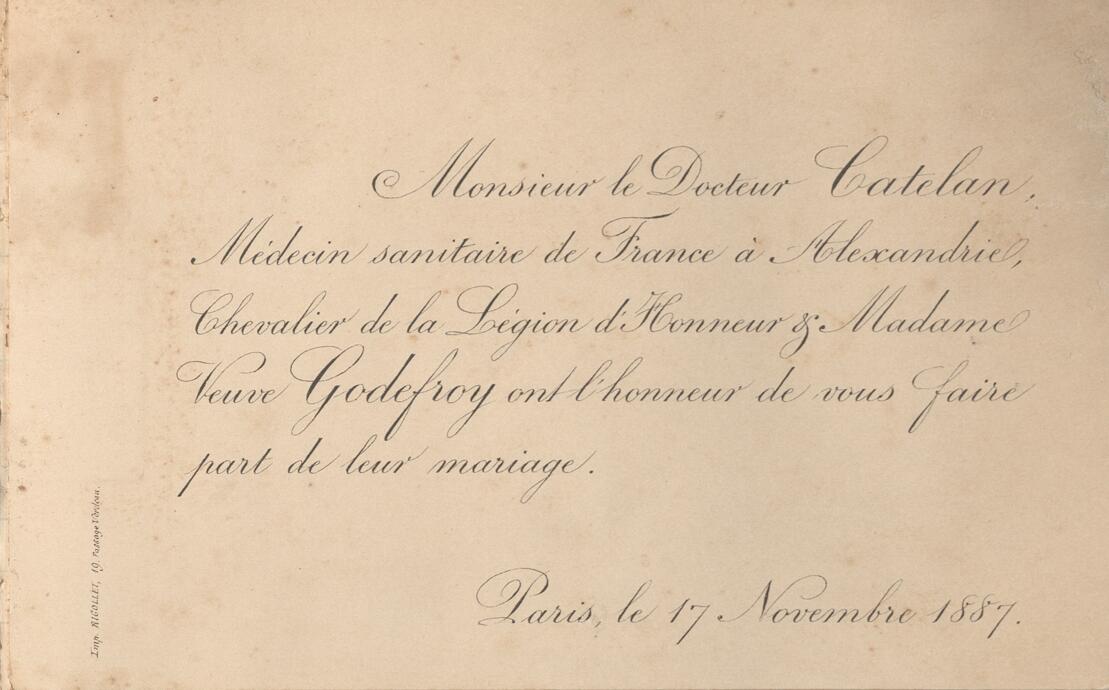 Monsieur le Docteur Catelan,
Médecin sanitaire de France à Alexandrie,
Chevalier de la Légion d'Honneur & Madame
Veuve Godefroy ont l'honneur de vous faire
part de leur mariage.
Paris, le 17 Novembre 1887.
Imp. RIGOLLET, 19, Passage Verdeau.